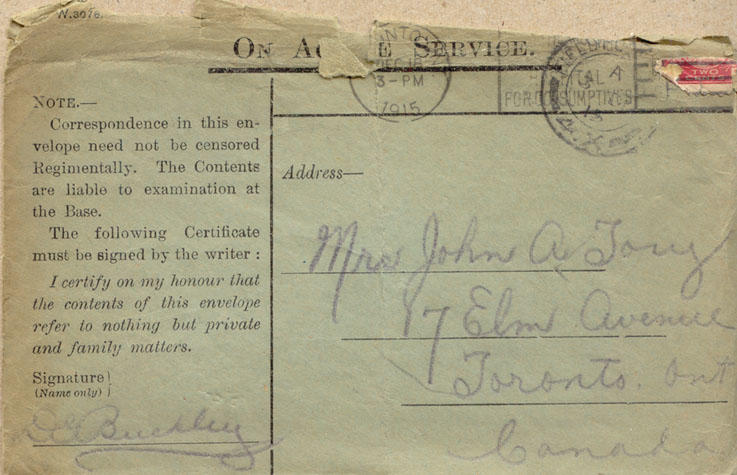 W.3078.
ON AC E SERVICE.
NOTE.—
Correspondence in this en-
velope need not be censored
Regimentally. The Contents
are liable to examination at
the Base.
The following Certificate
must be signed by the writer :
I certify on my honour that
the contents of this envelope
refer to nothing but private
and family matters.
Signature
(Name only)
Buckley
3-PM
1915
TAL
FOR CONSUMPTIVES
TWO
Address—
Mrs John A Tory
17 Elm Avenue
Toronto. Ont
Canada